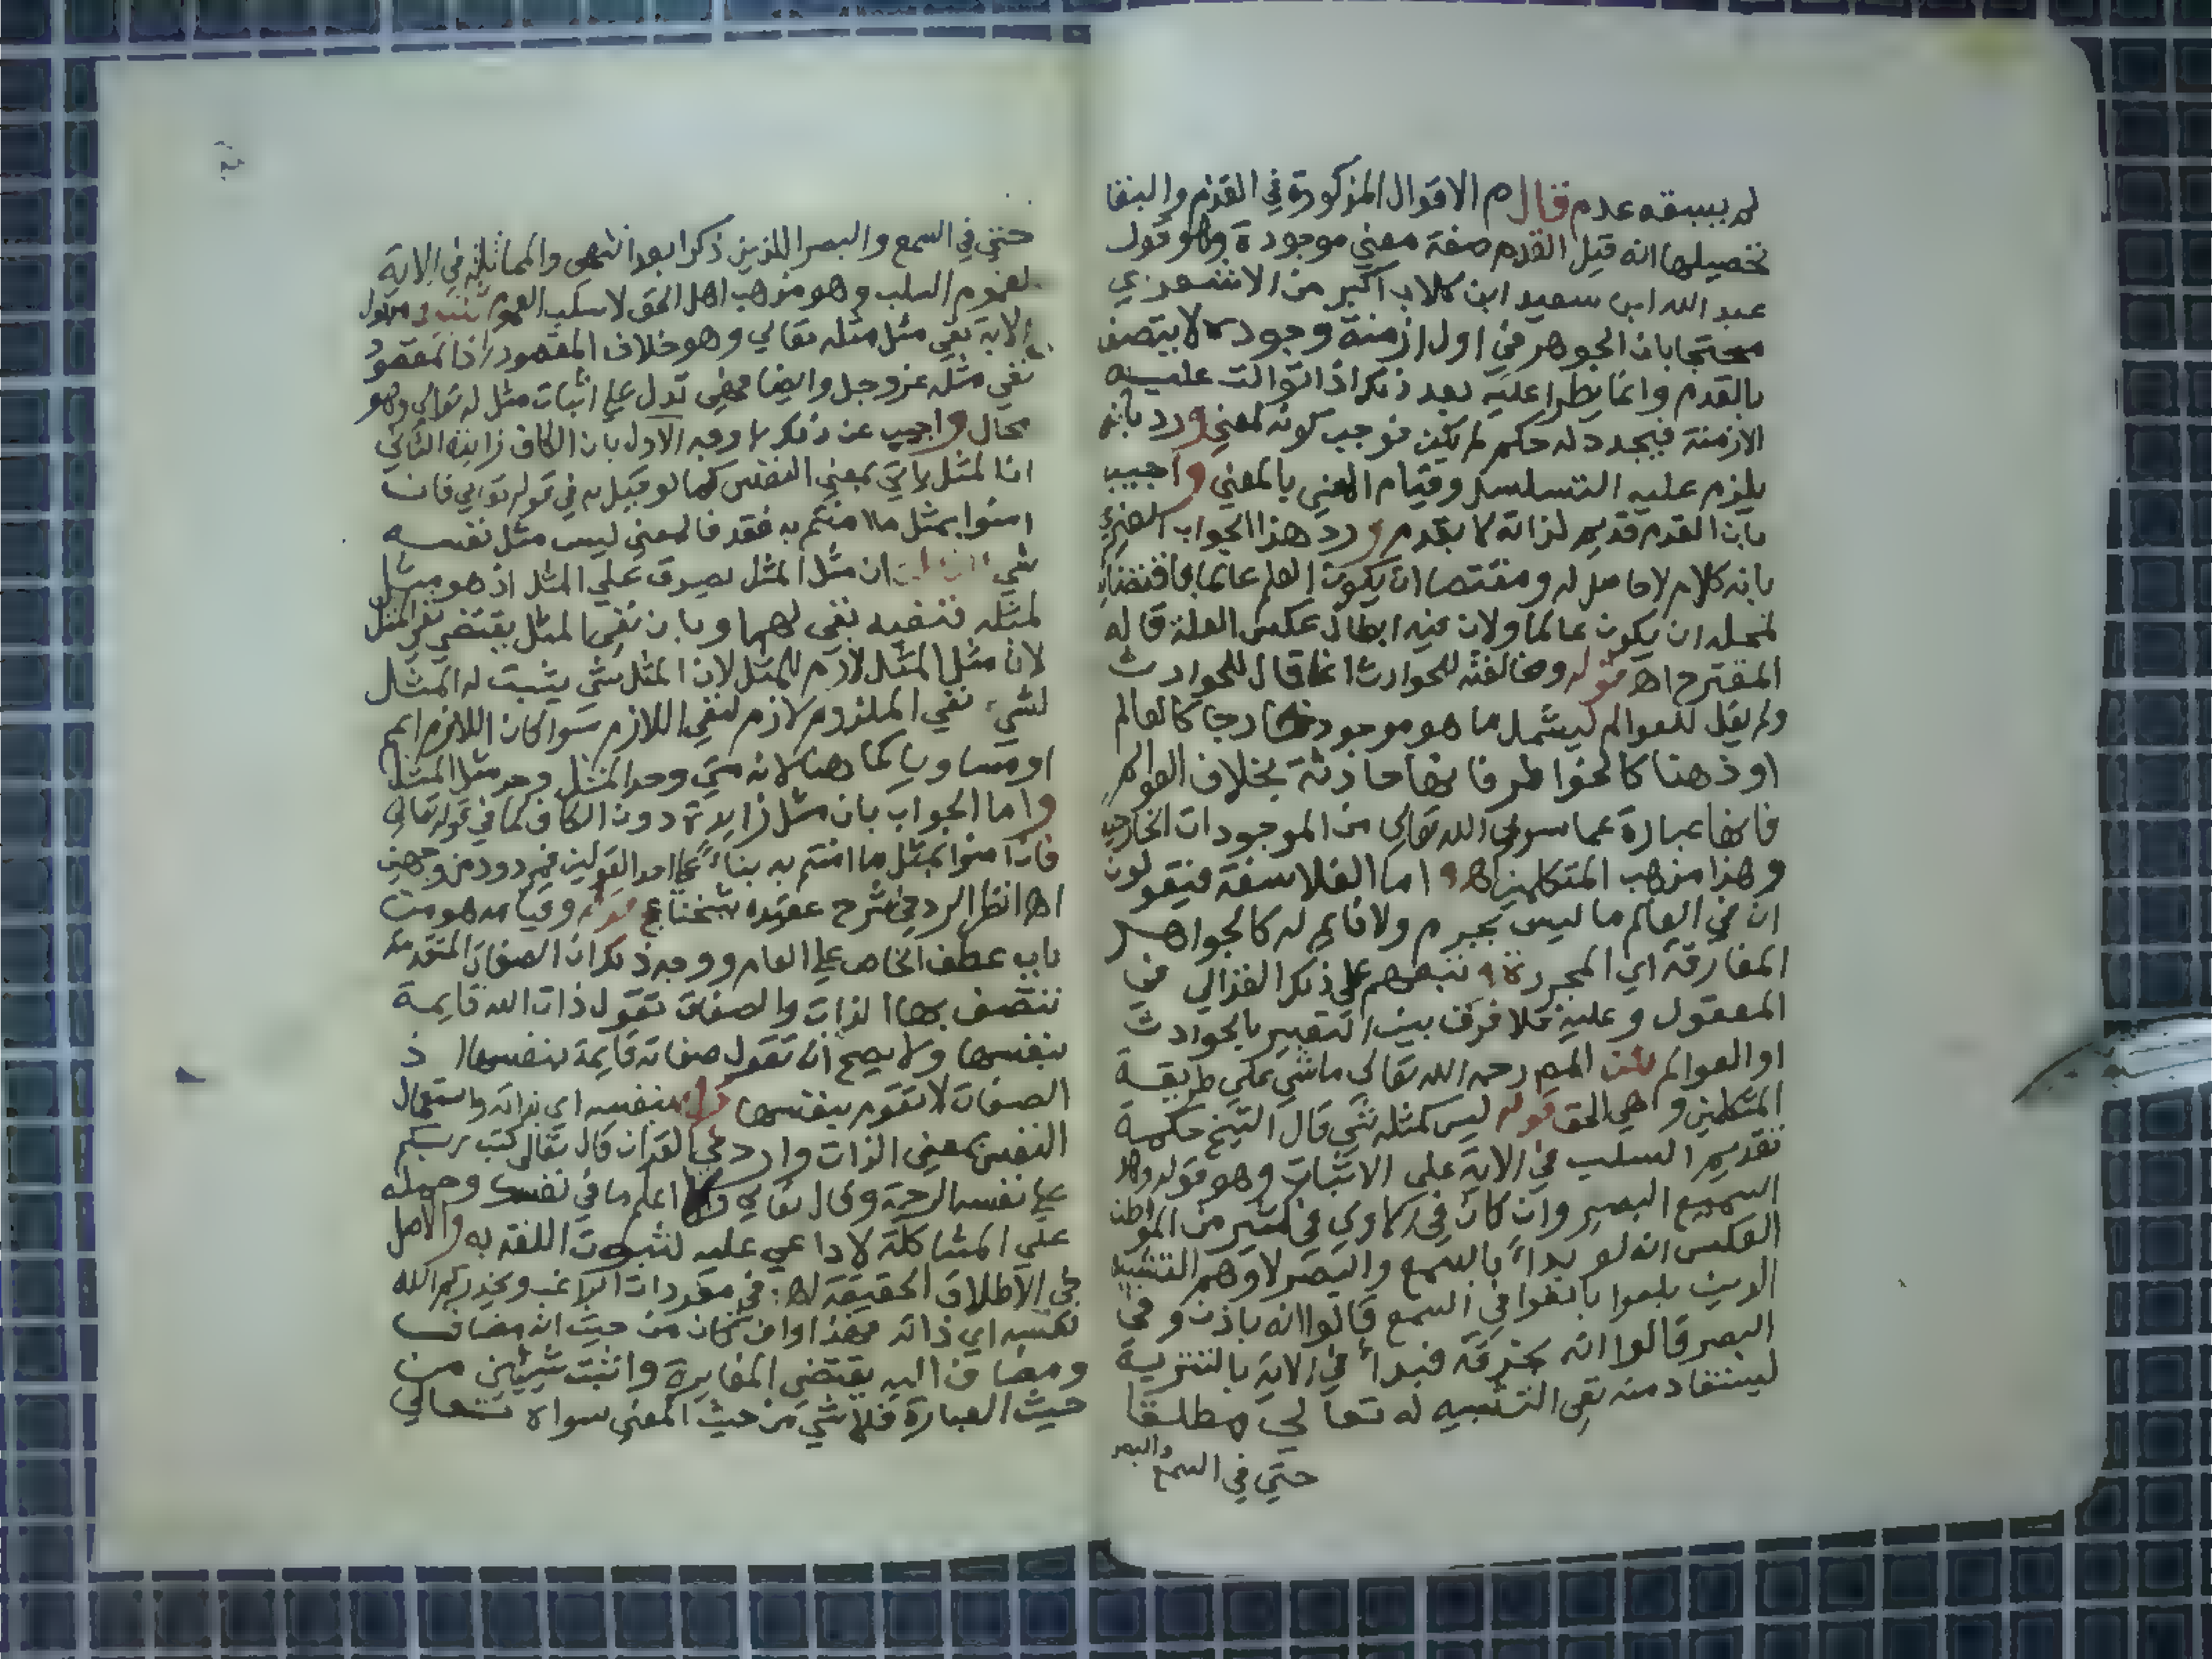 لم يسبقه عدم قال م الاقوال المذكورة في القدم والبقا
تحصيلها انه قيل القدم صفة معني موجودة وهو قول
عبد الله ابن سعيد ابن كلاب اكبر من الاشعري
محتجا بان الجوهر في اول ازمنة وجوده لا يتصف
بالقدم وانما يطرا عليه بعد ذلك اذا توالت عليه
الازمنة فيجدد له حكم لم يكن فوجب كونه لمعني ورد بانه
يلزم عليه التسلسل وقيام المعني بالمعني واجيب
بان القدم قديم لذاته لا بقدم ورد هذا الجواب
بانه كلام لا حاصل له ومقتضاه ان يكون العلم عالما
لمحله ان يكون عالما ولان فيه ابطال عكس العلة قاله
المقترح اه قوله ومخالفته للحوادث انما قال للحوادث
ولم يقل للعوالم ليشمل ما هو موجود خارجا كالعالم
او ذهنا كالخواطر فانها حادثة بخلاف العوالم
فانها عبارة عما سوي الله تعالي من الموجودات الخارجية
وهذا مذهب المتكلمين اه واما الفلاسفة فيقولون
ان في العالم ما ليس بجرم ولا قايم له كالجواهر
المفارقة اي المجردة وتبعهم علي ذلك الغزالي في
المعقول وعليه فلا فرق بين التعبير بالحوادث
او العوالم لكن المص رحمه الله تعالي ماشي علي طريقة
المتكلمين وهي الحق قوله ليس كمثله شي قال الشيخ حكمة
تقديم السلب في الاية علي الاثبات وهو قوله وهو
السميع البصير وان كان في كثير من المواطن
العكس انه لو بدا بالسمع والبصر لاوهم التشبيه
الذين بالغوا في السمع قالوا انه باذن وفي
البصر قالوا انه بحدقة فبدأ في الاية بالتنزيه
ليستفاد منه نفي التشبيه له تعالي مطلقا
حتي في السمع والبصر
حتي في السمع والبصر اللذين ذكرا بعد انتهي والمماثلة في الاية
لعموم السلب وهو مذهب اهل الحق لا سلب العموم
الاية نفي مثل مثله تعالي وهو خلاف المقصود اذ المقصود
نفي مثله عز وجل وايضا فهي تدل علي اثبات مثل له تعالي وهو
محال واجيب عن ذلك باوجه الاول بان الكاف زايدة الثاني
ان المثل ياتي بمعني النفس كما لو قيل به في قوله تعالي فان
امنوا بمثل ما امنتم به فقد فالمعني ليس مثل نفسه
شي ان مثل المثل يصدق علي المثل اذ هو مثل
لمثله فنفيه نفي لهما وبان نفي المثل يقتضي نفي المثل
لان مثل المثل لازم للمثل لان المثل شي يثبت له المثل
لشي نفي الملزوم لازم لنفي اللازم سوا كان اللازم اعم
او مساويا كما هنا لانه متي وجد المثل وجد مثل المثل
واما الجواب بان مثل زايدة دون الكاف كما في قوله تعالي
فان امنوا بمثل ما امنتم به بناء علي احد القولين فمردود من وجهين
اه انظر الرد في شرح عقيدة شيخنا ع قوله وقيامه هو من
باب عطف الخاص علي العام ووجه ذلك ان الصفات المتقدمة
تتصف بها الذات والصفات تقول ذات الله قايمة
بنفسها ولا يصح ان تقول صفاته قايمة بنفسها اذ
الصفات لا تقوم بنفسها قوله بنفسه اي بذاته واستعمال
النفس بمعني الذات وارد في القران قال تعالي كتب ربكم
علي نفسه الرحمة وقال تعالي ولا اعلم ما في نفسك وحمله
علي المشاكلة لا داعي عليه لثبوت اللغة به والاصل
في الاطلاق الحقيقة اه في مفردات الراغب ويحذركم الله
نفسه اي ذاته فهذا وان كان من حيث انه مضاف
ومضاف اليه يقتضي المغايرة واثبت شيئين من
حيث العبارة فلا شي من حيث المعني سواه تعالي